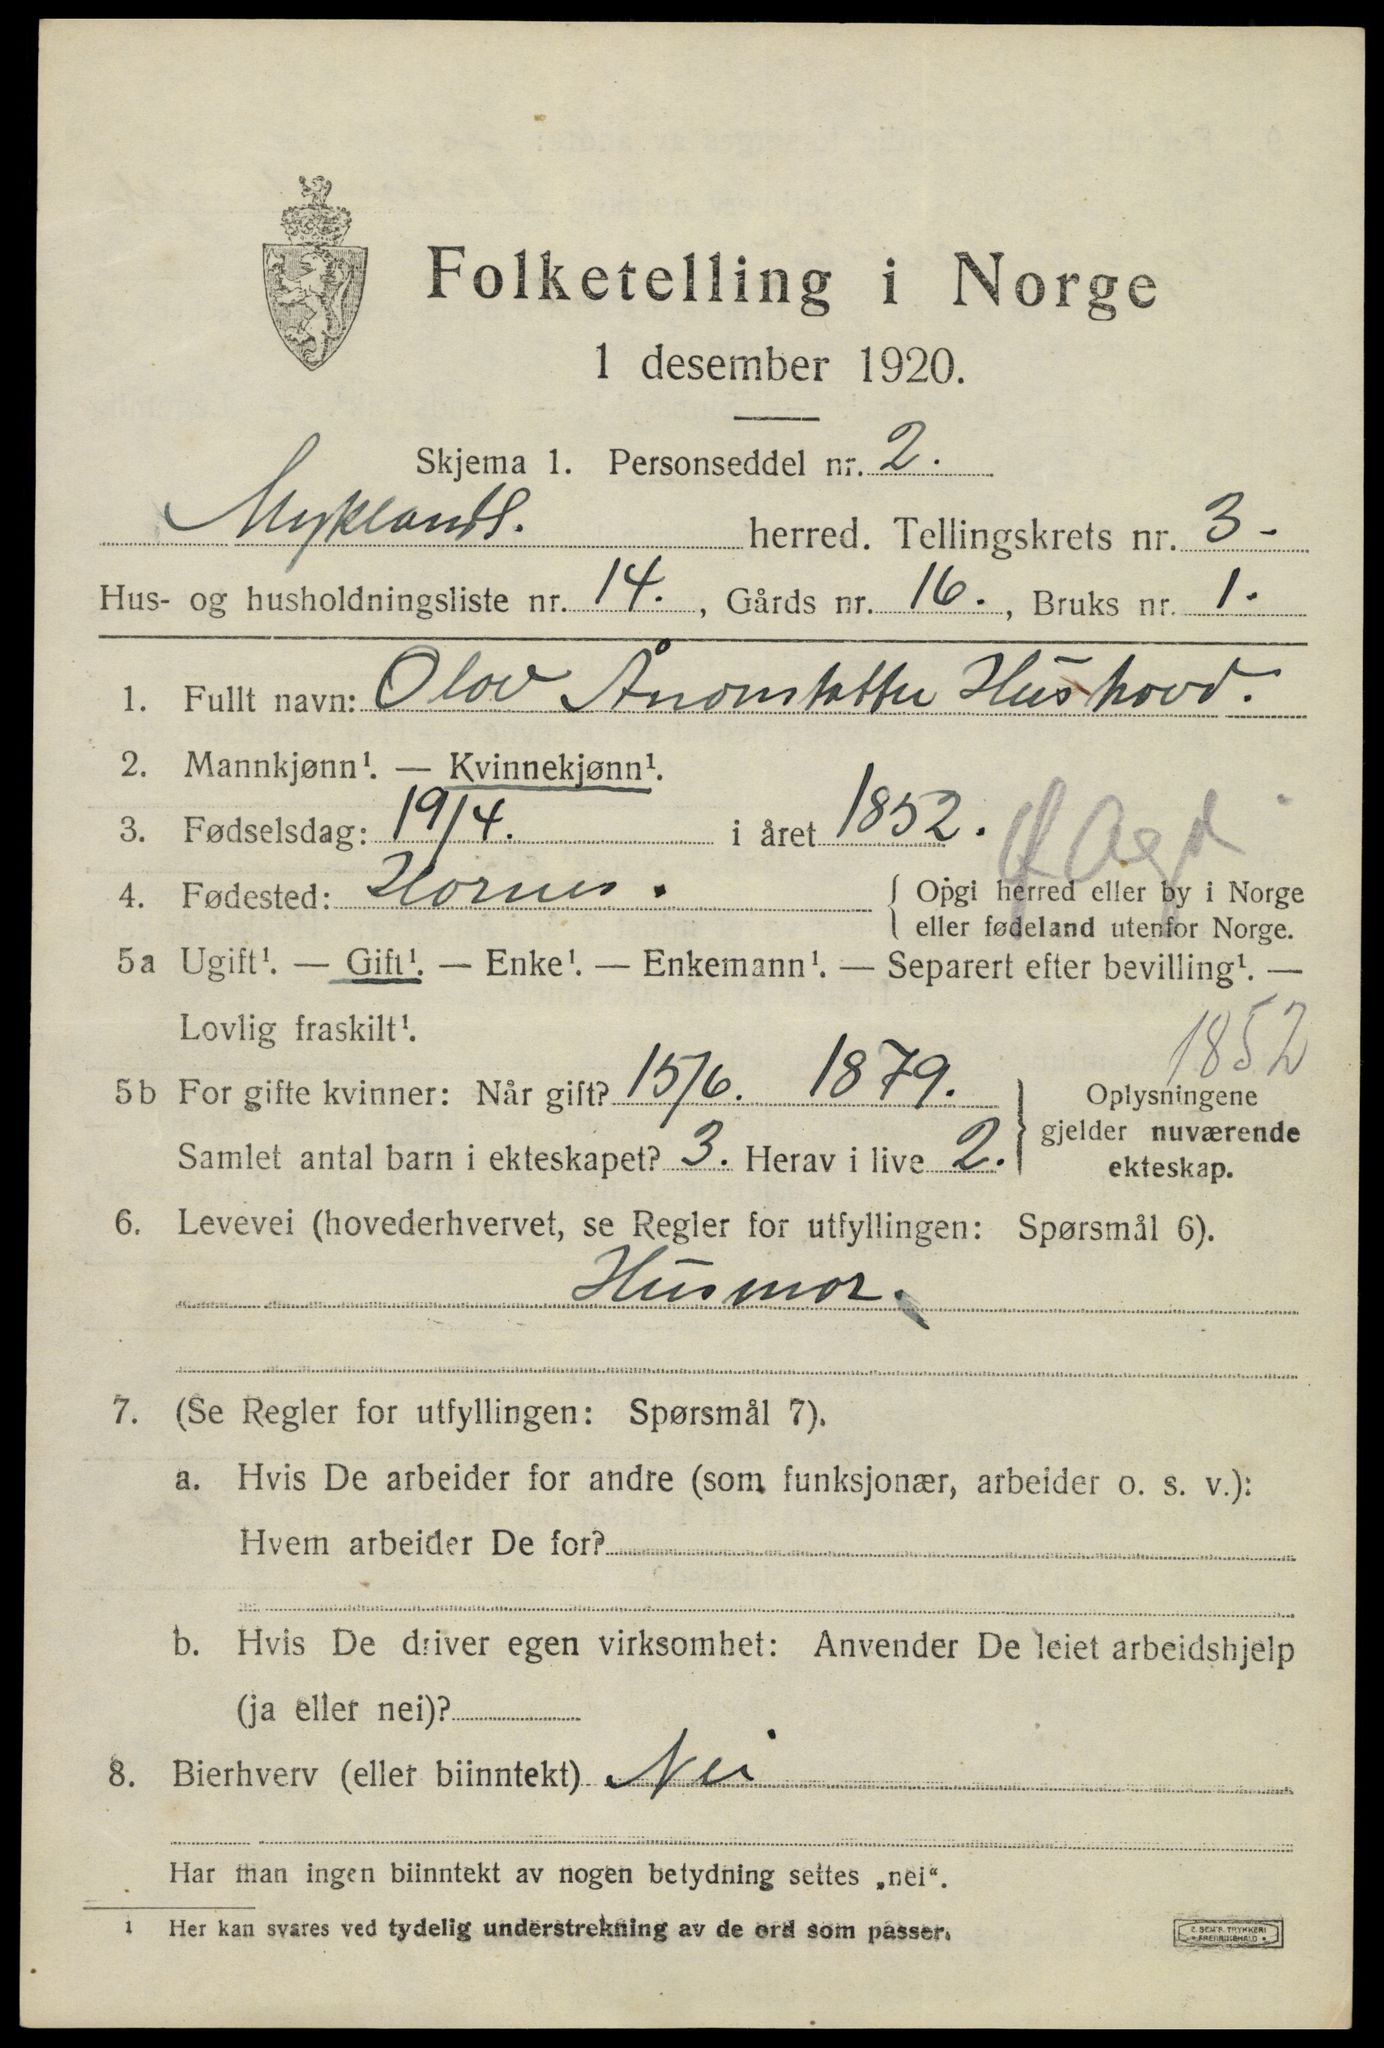 Folketelling i Norge
1 desember 1920.
Skjema 1. Personseddel nr. 2.
Myklands. herred. Tellingskrets nr. 3-
Hus- og husholdningsliste nr. 14., Gårds nr. 16., Bruks nr. 1.
1. Fullt navn: Olav Hushovd.
2. Mannkjønn¹. — Kvinnekjønn¹.
3. Fødselsdag: 19/4. i året 1852.
4. Fødested: Hornes. { Opgi herred eller by i Norge
eller fødeland utenfor Norge.
5a Ugift¹. — Gift¹. — Enke¹. — Enkemann¹. — Separert efter bevilling¹. —
Lovlig fraskilt¹.
1852
5b For gifte kvinner: Når gift? 15/6. 1879. } Oplysningene
gjelder nuværende
Samlet antal barn i ekteskapet? 3. Herav i live 2.
ekteskap.
6. Levevei (hovederhvervet, se Regler for utfyllingen: Spørsmål 6).
Husmor.
7. (Se Regler for utfyllingen: Spørsmål 7).
a. Hvis De arbeider for andre (som funksjonær, arbeider o. s. v.):
Hvem arbeider De for?
b. Hvis De driver egen virksomhet: Anvender De leiet arbeidshjelp
(ja eller nei)?
8. Bierhverv (eller biinntekt) Nei
Har man ingen biinntekt av nogen betydning settes „nei“.
¹ Her kan svares ved tydelig understrekning av de ord som passer.
E. SEM'S TRYKKERI
FREDRIKSHALD